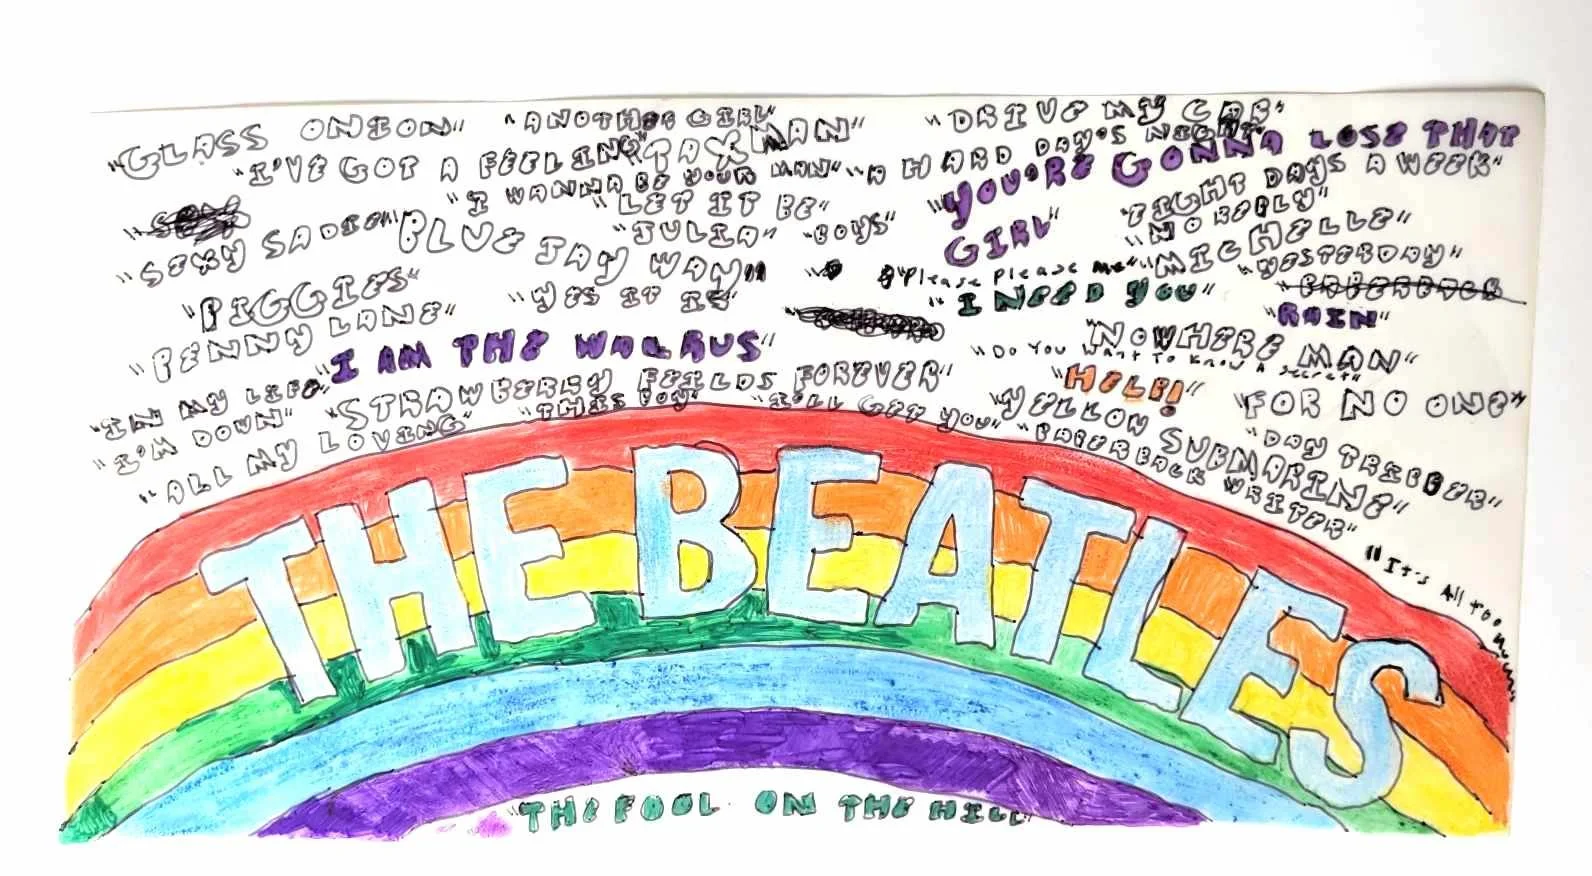 "GLASS ONION"
"ANOTHER GIRL"
"DRIVE MY CAR"
"I'VE GOT A FEELING"
"TAXMAN"
"A HARD DAY'S NIGHT"
"YOU'RE GONNA LOSE THAT
GIRL"
"I WANNA BE YOUR MAN"
"EIGHT DAYS A WEEK"
"LET IT BE"
"NO REPLY"
"SEXY SADIE"
"BLUE JAY WAY"
"JULIA"
"BOYS"
"MICHELLE"
"Please Please Me"
"YESTERDAY"
"PIGGIES"
"YES IT IS"
"I NEED YOU"
"RAIN"
"PENNY LANE"
"I AM THE WALRUS"
"NOWHERE MAN"
"DO YOU WANT TO KNOW A SECRET"
"IN MY LIFE"
"STRAWBERRY FEILDS FOREVER"
"HELP!"
"FOR NO ONE"
"I'M DOWN"
"THIS BOY"
"I'LL GET YOU"
"YELLOW SUBMARINE"
"DAY TRIPPER"
"ALL MY LOVING"
"PAPERBACK WRITER"
"It's All too much"
THE BEATLES
"THE FOOL ON THE HILL"